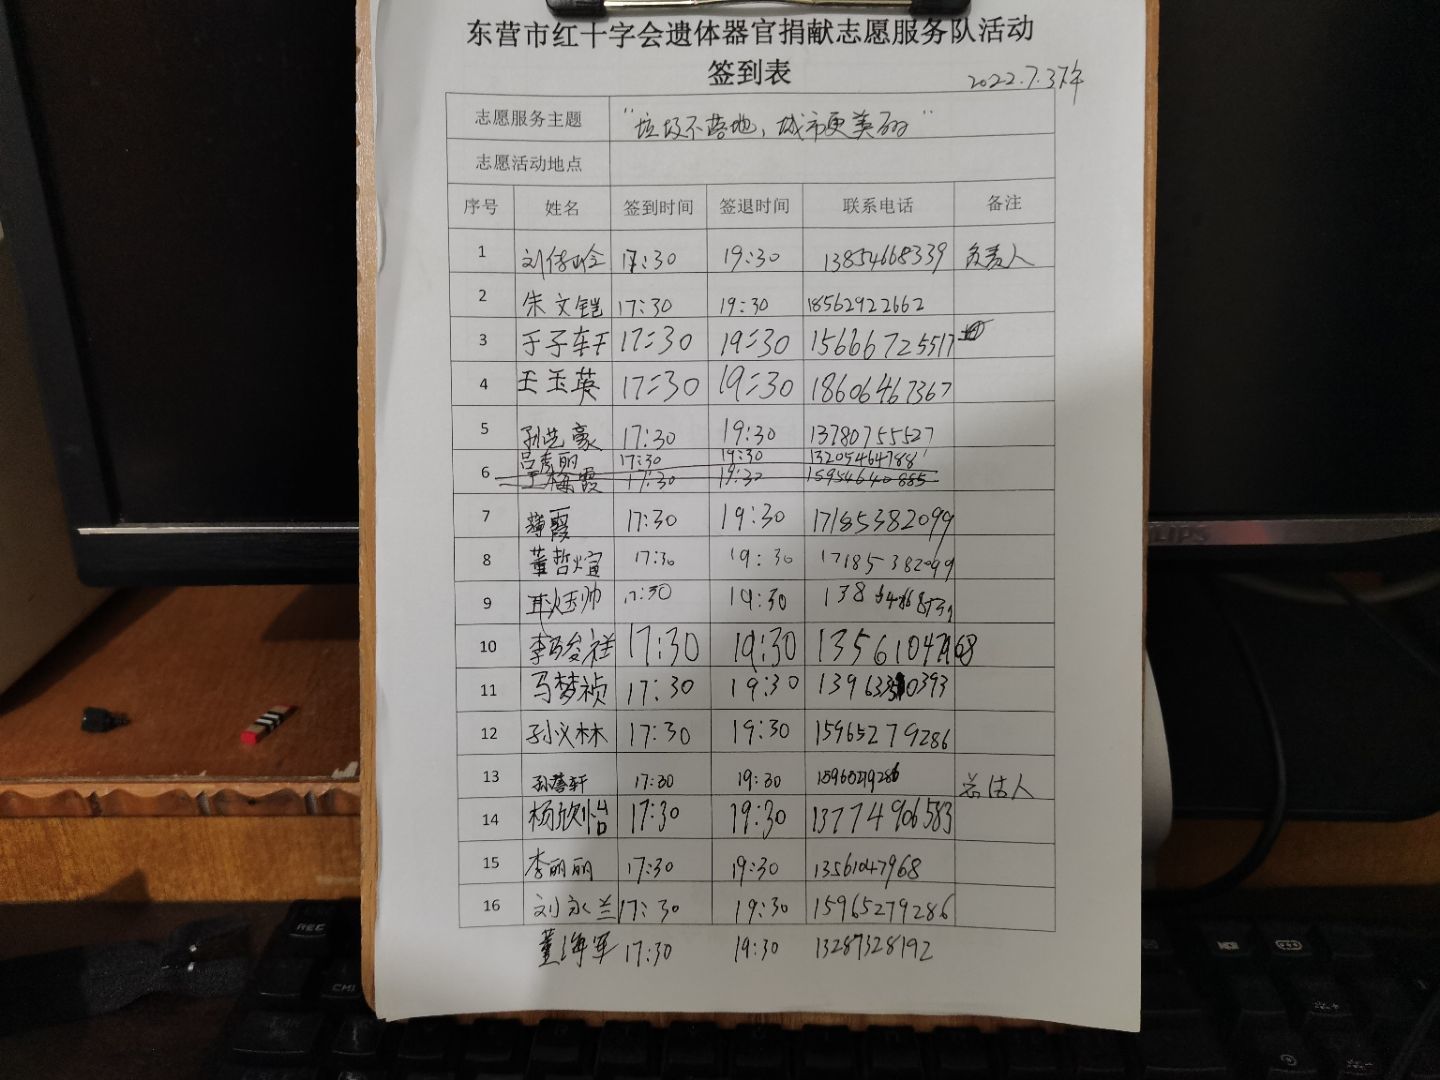 东营市红十字会遗体器官捐献志愿服务队活动
签到表
志愿服务主题 "垃圾不落地，城市更美丽"
志愿活动地点
序号 姓名 签到时间 签退时间 联系电话 备注
1 17:30 19:30 13854668339 负责人
2 朱文铠 17:30 19:30 18562922662
3 于子轩 17:30 19:30 15666725517
4 王玉英 17:30 19:30 18606467367
5 孙艺豪 17:30 19:30 13780755527
吕秀丽 17:30 19:30 13205464788
6 17:30 19:30 15954640885
7 17:30 19:30 17185382099
8 董哲煊 17:30 19:30 17185382099
9 17:30 19:30
10 17:30 19:30
11 马梦祯 17:30 19:30
12 孙义林 17:30 19:30 15965279286
13 17:30 19:30 15965279286
14 杨欣怡 17:30 19:30 13774906583
15 李丽丽 17:30 19:30 13561047968
16 刘永兰 17:30 19:30 15965279286
董海军 17:30 19:30 13287328192
PHILIPS